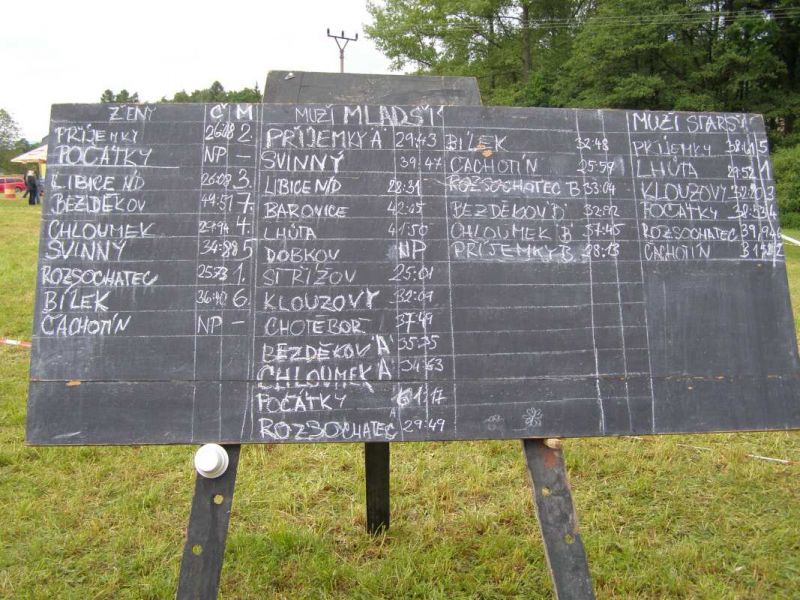 ŽENY Č M
PŘÍJEMKY 26:08 2.
POČÁTKY NP –
LIBICE N/D 26:09 3.
BEZDĚKOV 49:51 7.
CHLOUMEK 29:94 4.
SVINNÝ 34:88 5
ROZSOCHATEC 25:73 1.
BÍLEK 36:40 6.
ČACHOTÍN NP –
MUŽI MLADŠÍ
PŘÍJEMKY A 29:43
SVINNÝ 39:47
LIBICE N/D 28:31
BAROVICE 42:45
LHŮTA 41:50
DOBKOV NP
STŘÍŽOV 25:01
KLOUZOVY 32:09
CHOTĚBOŘ 37:49
BEZDĚKOV A 35:35
CHLOUMEK A 34:63
POČÁTKY
ROZSOCHATEC A 29:49
BÍLEK 32:48
ČACHOTÍN 25:59
ROZSOCHATEC B 33:04
BEZDĚKOV B
CHLOUMEK B 37:45
PŘÍJEMKY B 28:13
MUŽI STARŠÍ
PŘÍJEMKY 38:41 5
LHŮTA 29:52 1
KLOUZOVY 32:80 3
POČÁTKY 38:53 4
ROZSOCHATEC 39,94 6
ČACHOTÍN